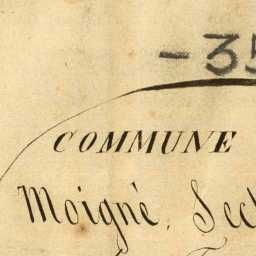 -35
COMMUNE
Moigné, Sect